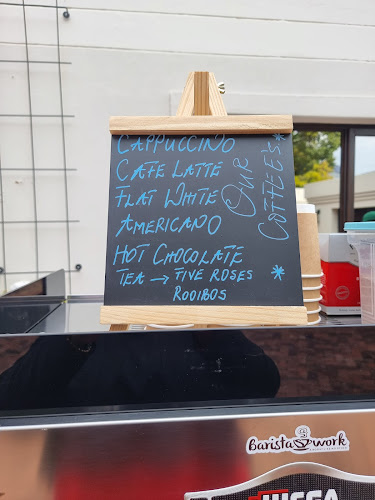 CAPPUCCINO
CAFE LATTE
FLAT WHITE
AMERICANO
HOT CHOCOLATE
TEA → FIVE ROSES
ROOIBOS
OUR
COFFEE'S
Barista work